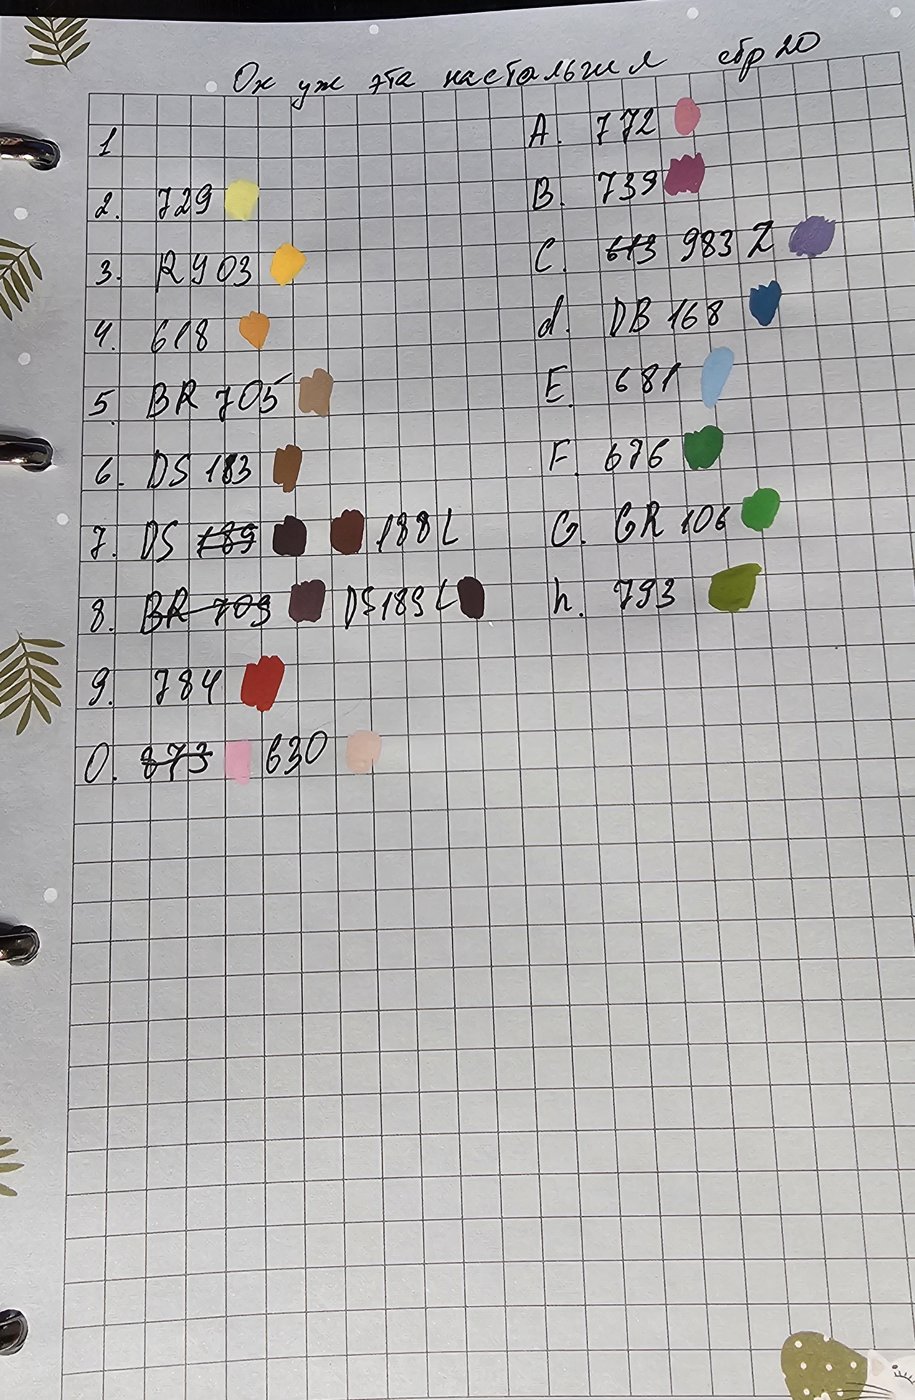 Ох уж эта настальгия стр 20
1
2. 729
3. RY 03
4. 618
5. BR 705
6. DS 183
7. DS 189 188 L
8. BR 709 DS 189 L
9. 784
0. 873 630
A. 772
B. 739
C. 613 983 Z
d. DB 168
E. 681
F. 676
G. GR 106
h. 793